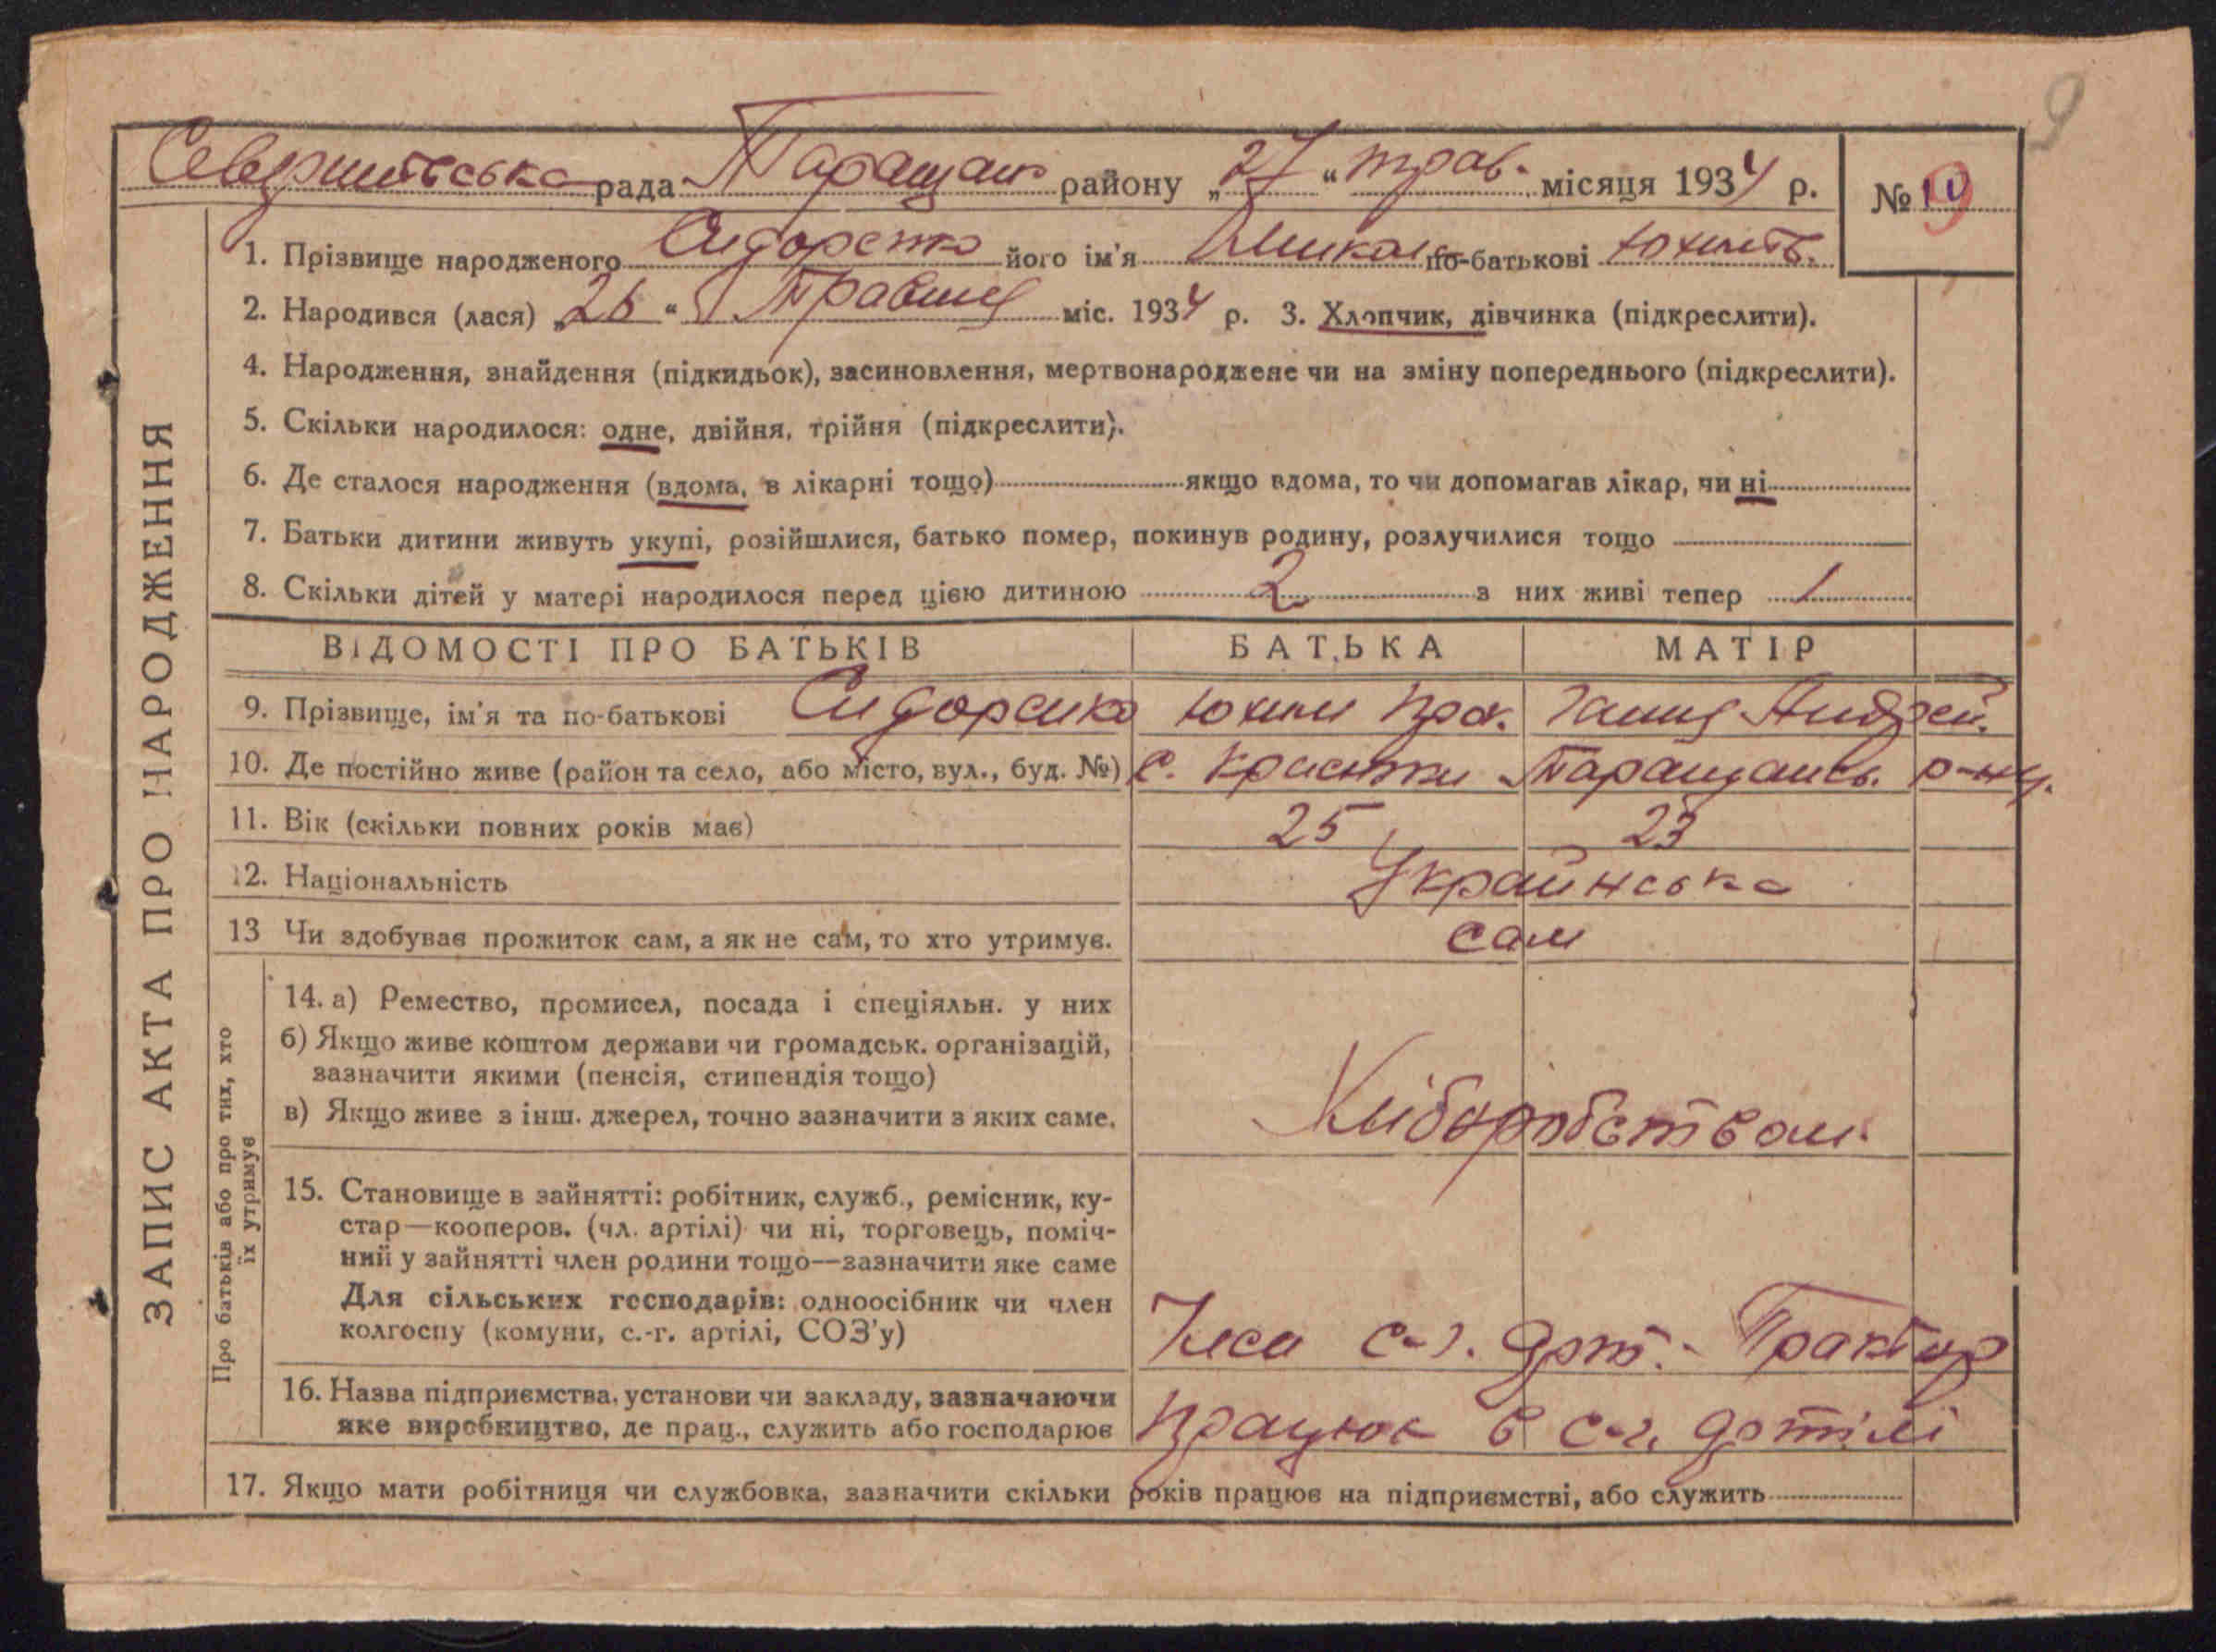 9
Северинівська рада Таращан району „27“ трав. місяця 1934 р. №
1. Прізвище народженого Сидоренко його ім'я Микола по-батькові Юхимів.
2. Народився (лася) „26“ Травня міс. 1934 р. 3. Хлопчик, дівчинка (підкреслити).
4. Народження, знайдення (підкидьок), засиновлення, мертвонароджене чи на зміну попереднього (підкреслити).
5. Скільки народилося: одне, двійня, трійня (підкреслити).
6. Де сталося народження (вдома, в лікарні тощо) якщо вдома, то чи допомагав лікар, чи ні
7. Батьки дитини живуть укупі, розійшлися, батько помер, покинув родину, розлучилися тощо
8. Скільки дітей у матері народилося перед цією дитиною 2 з них живі тепер 1
ЗАПИС АКТА ПРО НАРОДЖЕННЯ
ВІДОМОСТІ ПРО БАТЬКІВ БАТЬКА МАТІР
9. Прізвище, ім'я та по-батькові Сидоренко Юхим Ганна Андрей.
10. Де постійно живе (район та село, або місто, вул., буд. №) с. Таращанс. р-ну.
11. Вік (скільки повних років має) 25 23
12. Національність Украінська
13 Чи здобуває прожиток сам, а як не сам, то хто утримує. сам
Про батьків або про тих, хто
їх утримує
14. а) Ремество, промисел, посада і спеціяльн. у них
б) Якщо живе коштом держави чи громадськ. організацій,
зазначити якими (пенсія, стипендія тощо)
в) Якщо живе з інш. джерел, точно зазначити з яких саме. Хліборобством.
15. Становище в зайнятті: робітник, служб., ремісник, ку-
стар—кооперов. (чл. артілі) чи ні, торговець, поміч-
ний у зайнятті член родини тощо—зазначити яке саме
Для сільських господарів: одноосібник чи член
колгоспу (комуни, с.-г. артілі, СОЗ'у) с-г. арт. Трактор
16. Назва підприємства, установи чи закладу, зазначаючи
яке виробництво, де прац., служить або господарює працює в с-г. артілі
17. Якщо мати робітниця чи службовка, зазначити скільки років працює на підприємстві, або служить